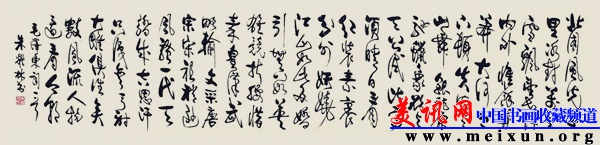 北国风光千
里冰封万里
雪飘望长城
内外惟余莽
莽大河上下
顿失滔滔
山舞银蛇原
驰蜡象欲与
天公试比高
须晴日看
红装素裹
分外妖娆
江山如此多娇
引无数英
雄竞折腰惜
秦皇汉武
略输文采唐
宗宋祖稍逊
风骚一代天
骄成吉思汗
只识弯弓射
大雕俱往矣
数风流人物
还看今朝
毛泽东词
朱
书
美讯网
中国书画收藏频道
www.meixun.org